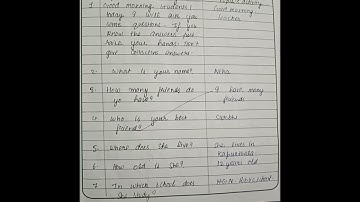 1. Good morning students! Good morning
today I will ask you teacher
some questions. If you
know the answers just
raise your hands. Don't
give collective answers.
2. What is your name? Neha
3. How many friends do I have many
yo have? friends
4. who is your best Sakshi
friend?
5. where does she live? She lives in
Kapurthala
6. How old is she? 12 years old
7. In which school does M.G.N. School
she study?